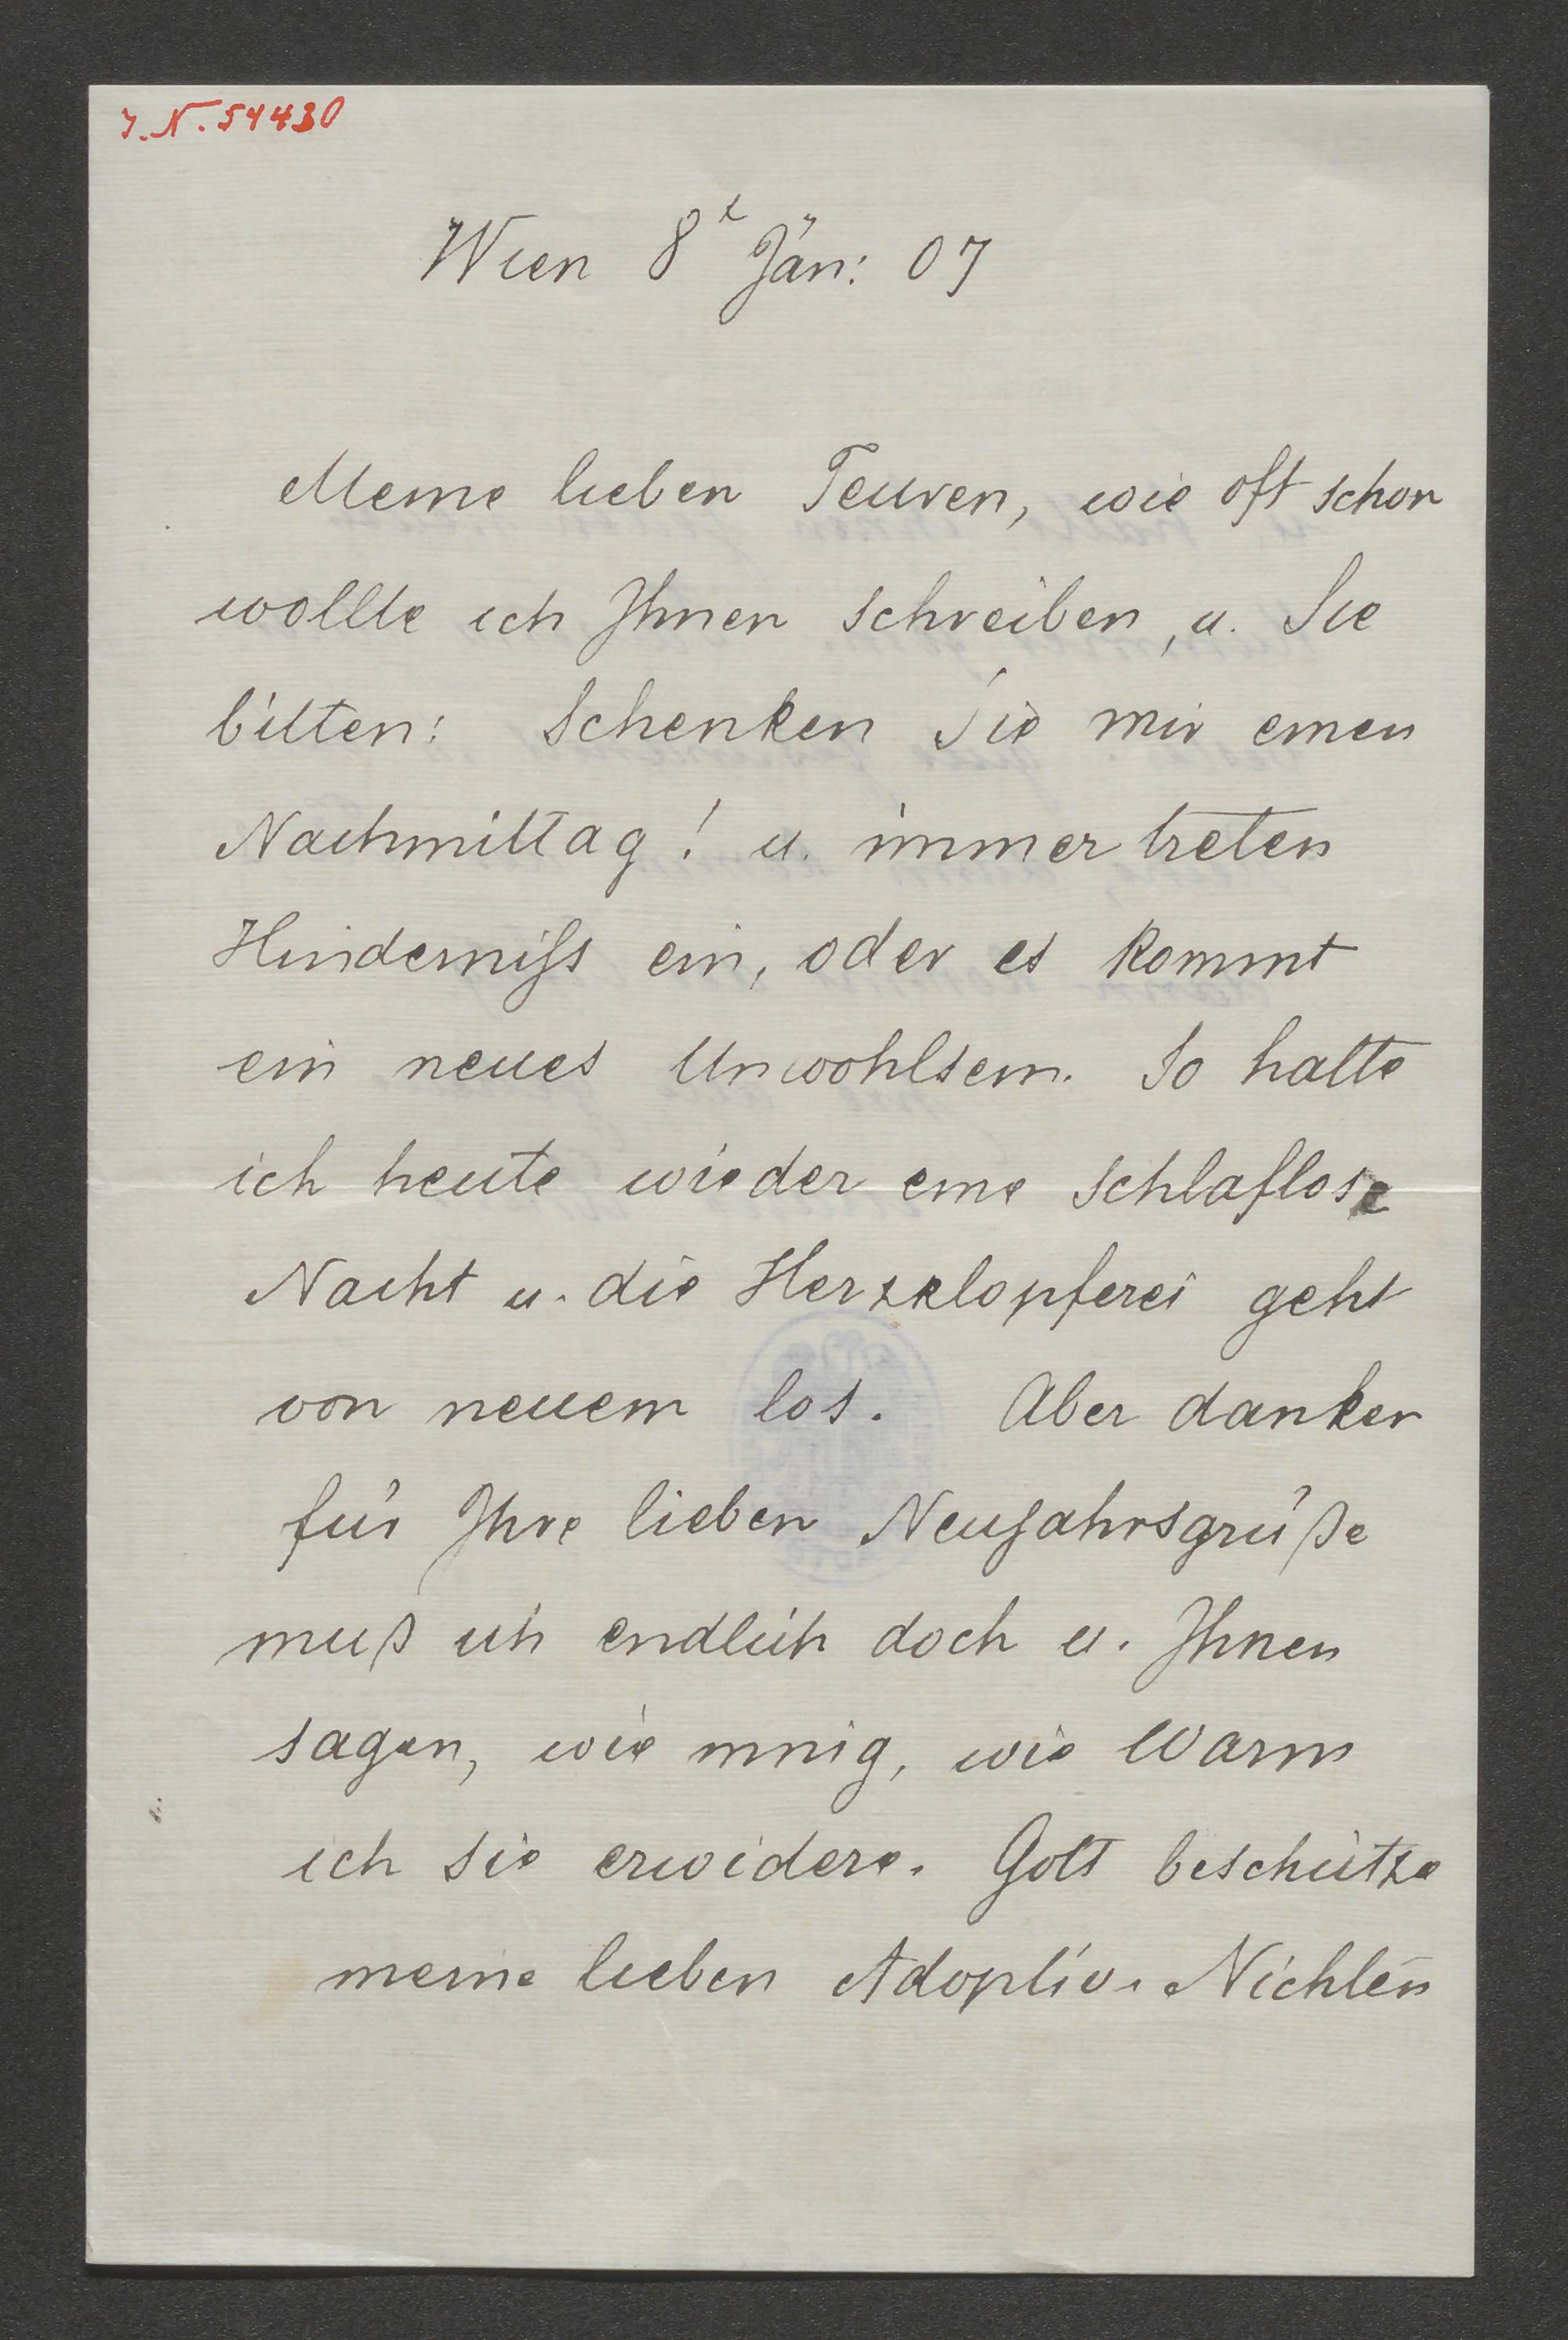 J. N. 54430
Wien 8t Jän: 07
Meine lieben Teuren, wie oft schon
wollte ich Ihnen schreiben, u. Sie
bitten: Schenken Sie mir einen
Nachmittag! u. immer treten
Hinderniſs ein, oder es kommt
ein neues Unwohlsein. So hatte
ich heute wieder eine schlaflose
Nacht u. die Herzklopferei geht
von neuem los. Aber danken
für Ihre lieben Neujahrsgrüße
muß ich endlich doch u. Ihnen
sagen, wie innig, wie warm
ich sie erwidere. Gott beschütze
meine lieben Adoptiv-Nichten